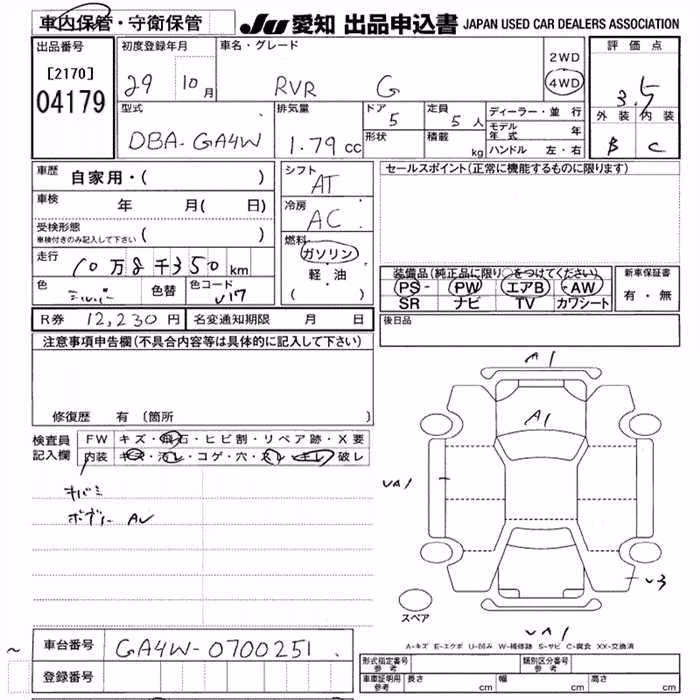 車内保管・守衛保管 JU 愛知 出品申込書 JAPAN USED CAR DEALERS ASSOCIATION
出品番号 初度登録年月 車名・グレード 2WD 評価点
[2170] 29 10月 RVR G 4WD 3.5
04179 型式 排気量 ドア 定員 ディーラー・並 行 外装 内装
DBA-GA4W 1.79cc 5 5人 モデル年式 年 B C
形状 積載 kg ハンドル 左・右
車歴 自家用・( ) シフト AT セールスポイント(正常に機能するものに限ります)
車検 年 月( 日) 冷房 AC
受検形態 ( )
車検付きのみ記入して下さい
燃料
走行 10万8千350km ガソリン 装備品(純正品に限り○をつけてください) 新車保証書
色 シルバー 色替 色コード U17 軽・油 PS PW エアB AW 有・無
( ) SR ナビ TV カワシート
R券 12,230円 名変通知期限 月 日 後日品
注意事項申告欄(不具合内容等は具体的に記入して下さい)
A1
修復歴 有〔箇所 〕 A1
検査員 FW キズ・飛石・ヒビ割・リペア跡・X要
記入欄 内装 キズ・汚レ・コゲ・穴・スレ・キレ・破レ
UA1
キバミ
ボデー AU
U3
スペア
UA1
A-キズ E-エクボ U-凹み W-補修跡 S-サビ C-腐食 XX-交換済
~ 車台番号 GA4W-0700251
登録番号
形式指定番号 参考 類別区分番号 参考
車庫証明用 参考 長さ cm 幅 cm 高さ cm